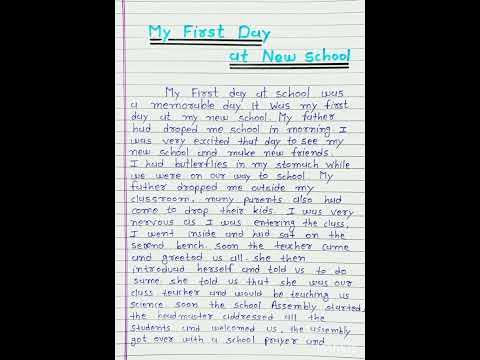 My First Day
at New School
My First day at school was
a memorable day. It was my first
day at my new school. My father
had droped me school in morning. I
was very excited that day to see my
new school and make new friends.
I had butlerflies in my stomach while
we were on our way to school. My
father dropped me outside my
classroom, many parents also had
come to drop their kids. I was very
nervous as I was entering the class,
I went inside and had sat on the
second bench. soon the teacher came
and greeted us all. she then
introduad herself and told us to do
same she told us that she was our
class teacher and would be teaching us
science. soon the school Assembly started,
the headmaster addressed all the
students and welcomed us, the assembly
got over with a school prayer and